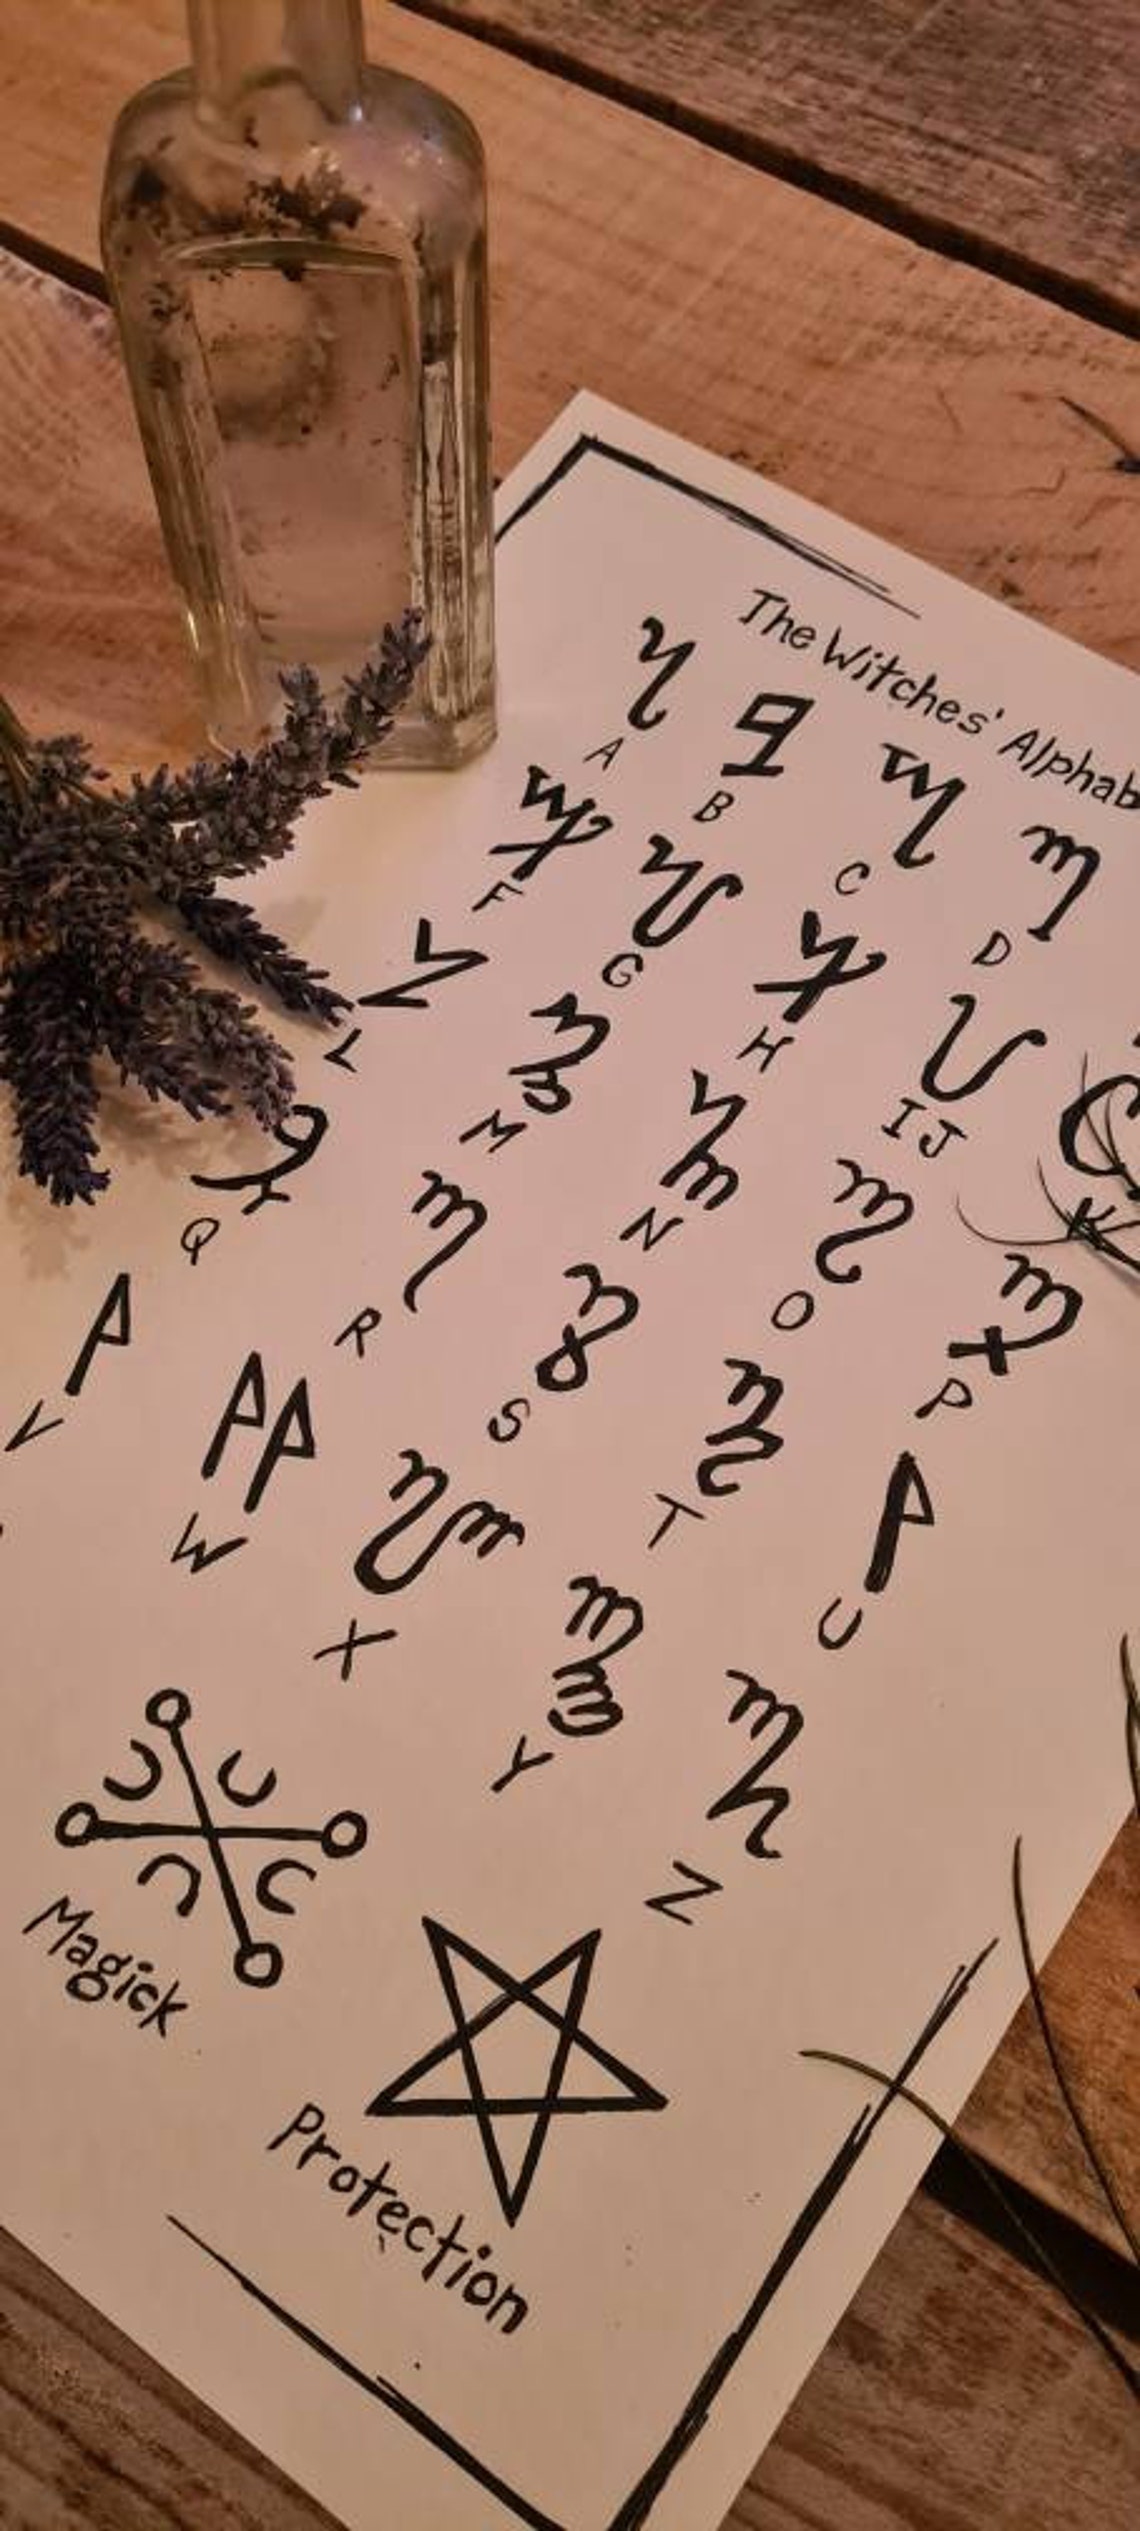 The Witches' Alphab
A B C D
F G H IJ K
L M N O P
Q R S T U
V W X Y Z
Magick
Protection